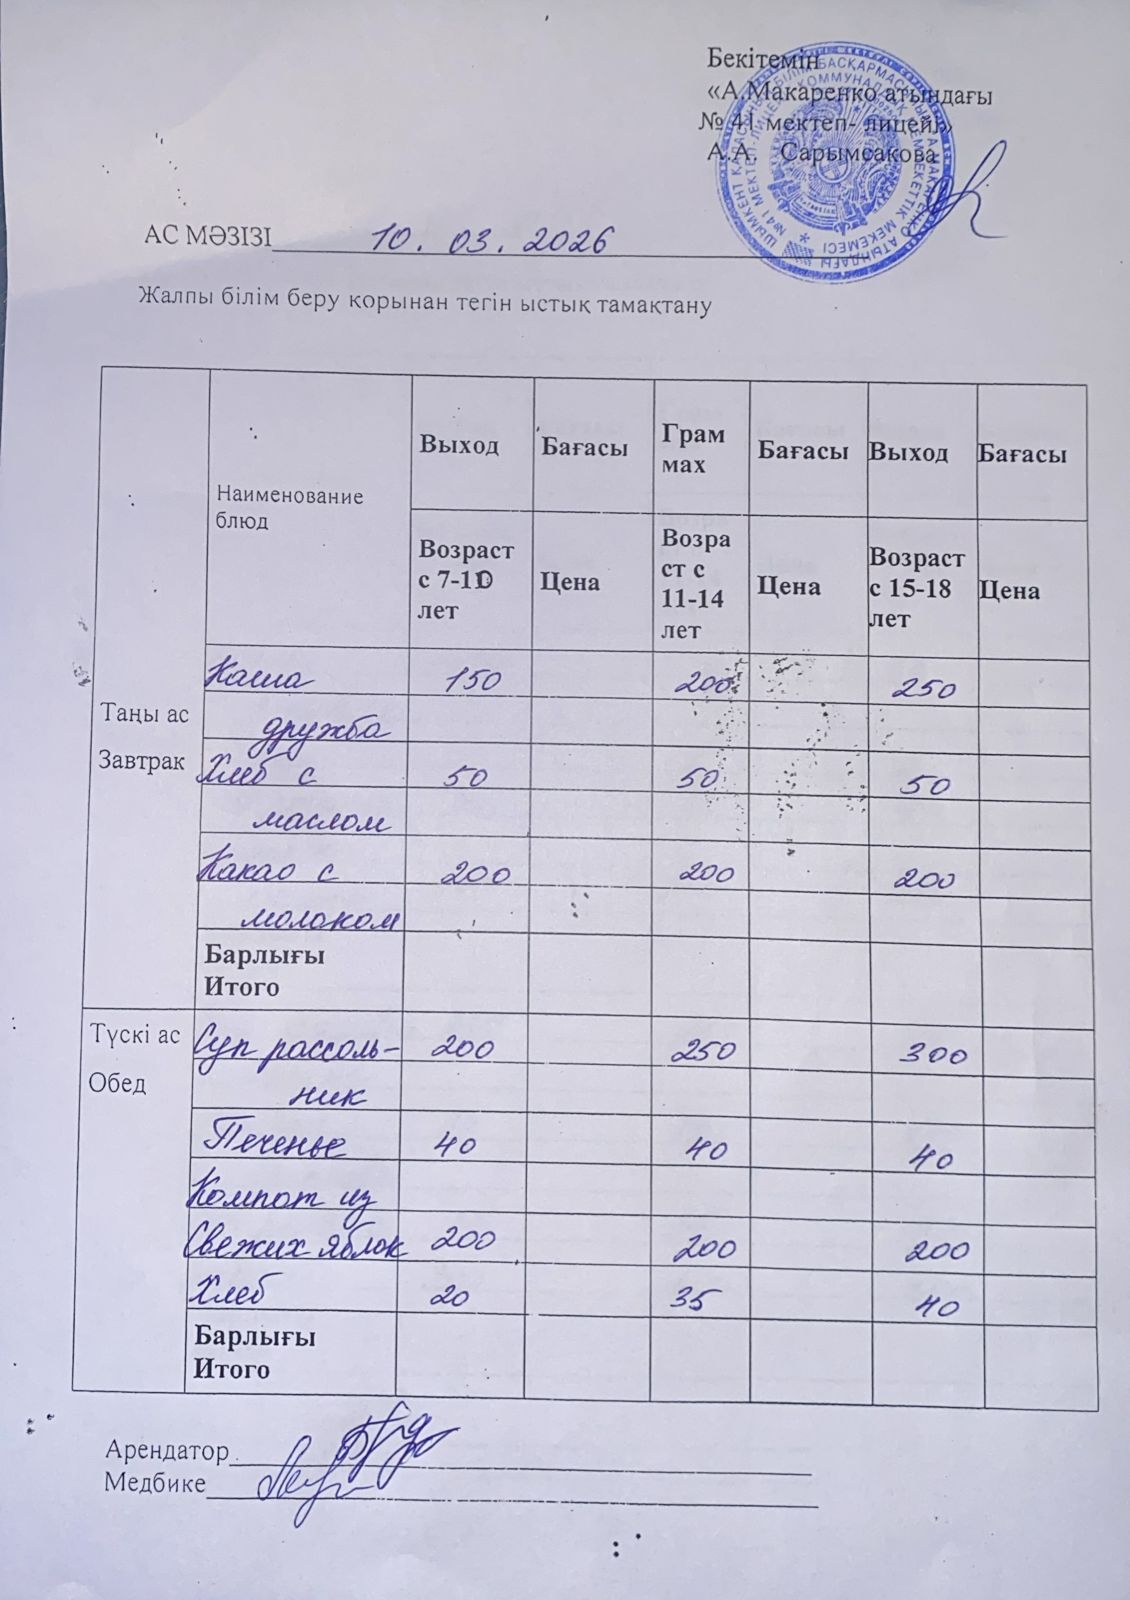 Бекітемін
«А.Макаренко атындағы
№ 41 мектеп- лицейі»
А.А. Сарымсакова
АС МӘЗІЗІ 10. 03. 2026
Жалпы білім беру қорынан тегін ыстық тамақтану
Наименование блюд
Выход Бағасы Грам мах Бағасы Выход Бағасы
Возраст с 7-10 лет Цена Возра ст с 11-14 лет Цена Возраст с 15-18 лет Цена
Таңы ас
Завтрак
Каша 150 200 250
дружба
Хлеб с 50 50 50
маслом
Какао с 200 200 200
молоком
Барлығы
Итого
Түскі ас
Обед
Суп рассоль- 200 250 300
ник
Печенье 40 40 40
Компот из
Свежих яблок 200 200 200
Хлеб 20 35 40
Барлығы
Итого
Арендатор
Медбике